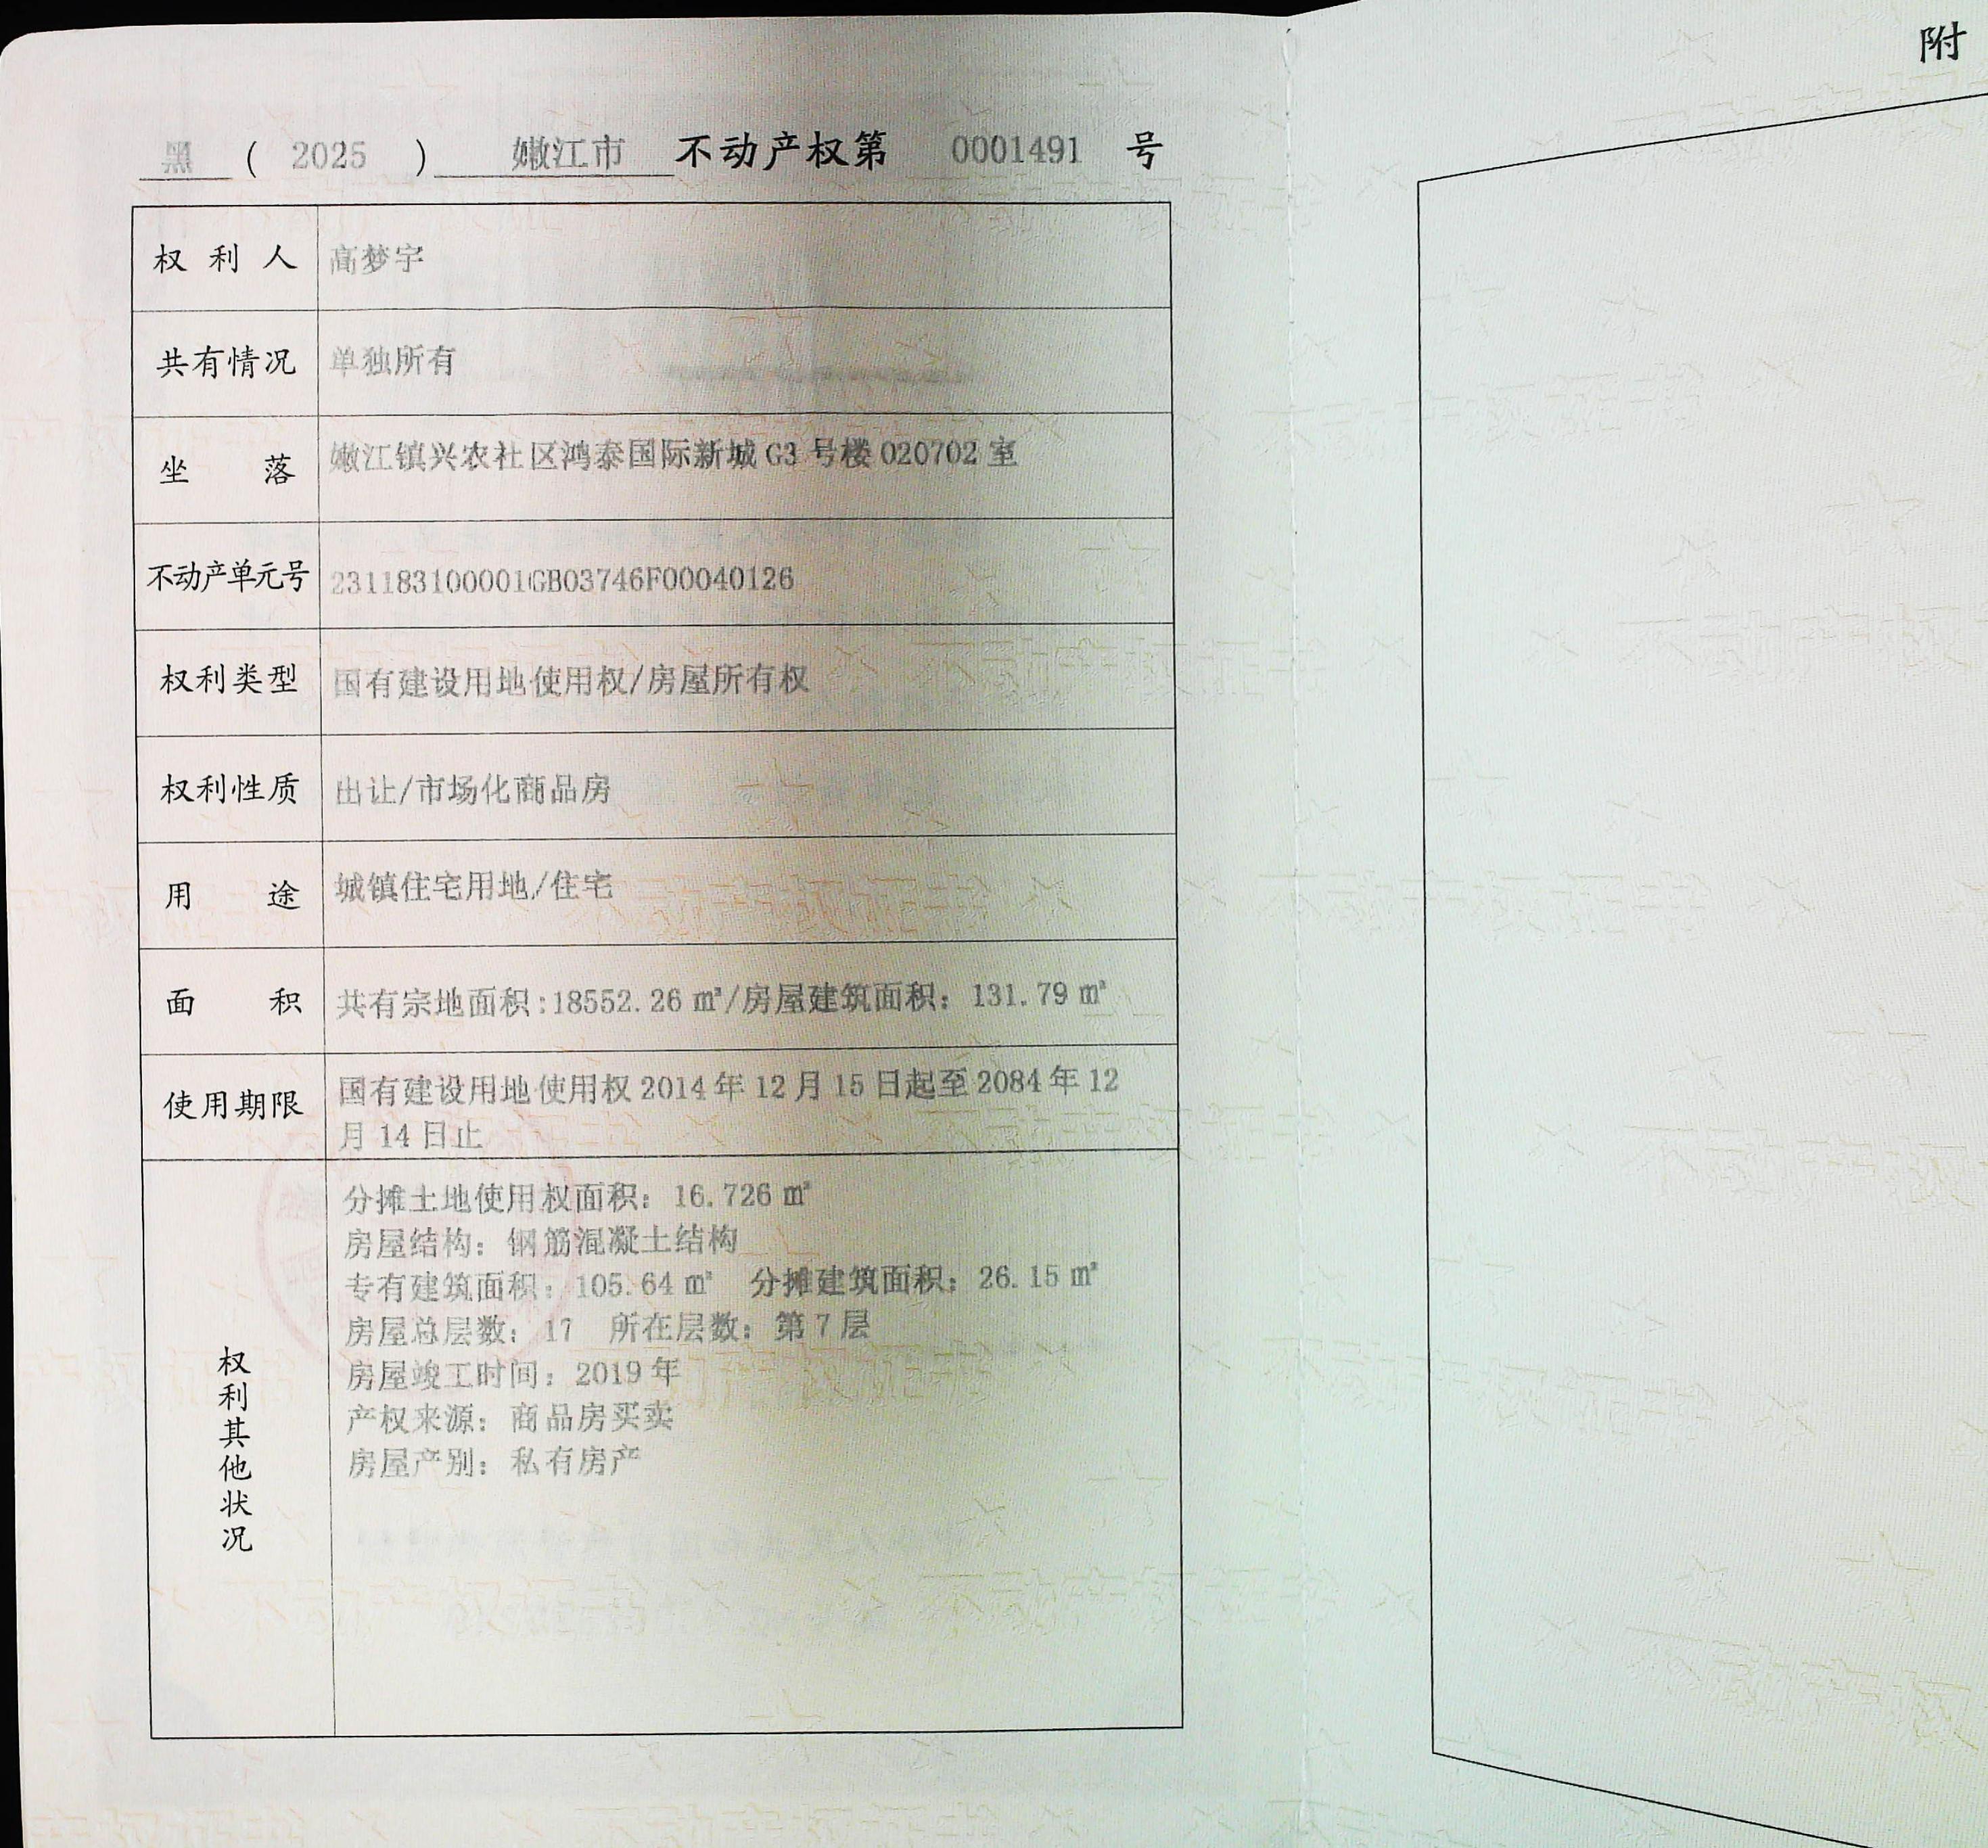 黑 ( 2025 ) 嫩江市 不动产权第 0001491 号
权利人 高梦宇
共有情况 单独所有
坐落 嫩江镇兴农社区鸿泰国际新城 G3 号楼 020702 室
不动产单元号 231183100001GB03746F00040126
权利类型 国有建设用地使用权/房屋所有权
权利性质 出让/市场化商品房
用途 城镇住宅用地/住宅
面积 共有宗地面积:18552.26 ㎡/房屋建筑面积：131.79 ㎡
使用期限 国有建设用地使用权 2014 年 12 月 15 日起至 2084 年 12
月 14 日止
权利其他状况
分摊土地使用权面积：16.726 ㎡
房屋结构：钢筋混凝土结构
专有建筑面积：105.64 ㎡ 分摊建筑面积：26.15 ㎡
房屋总层数：17 所在层数：第 7 层
房屋竣工时间：2019 年
产权来源：商品房买卖
房屋产别：私有房产
附